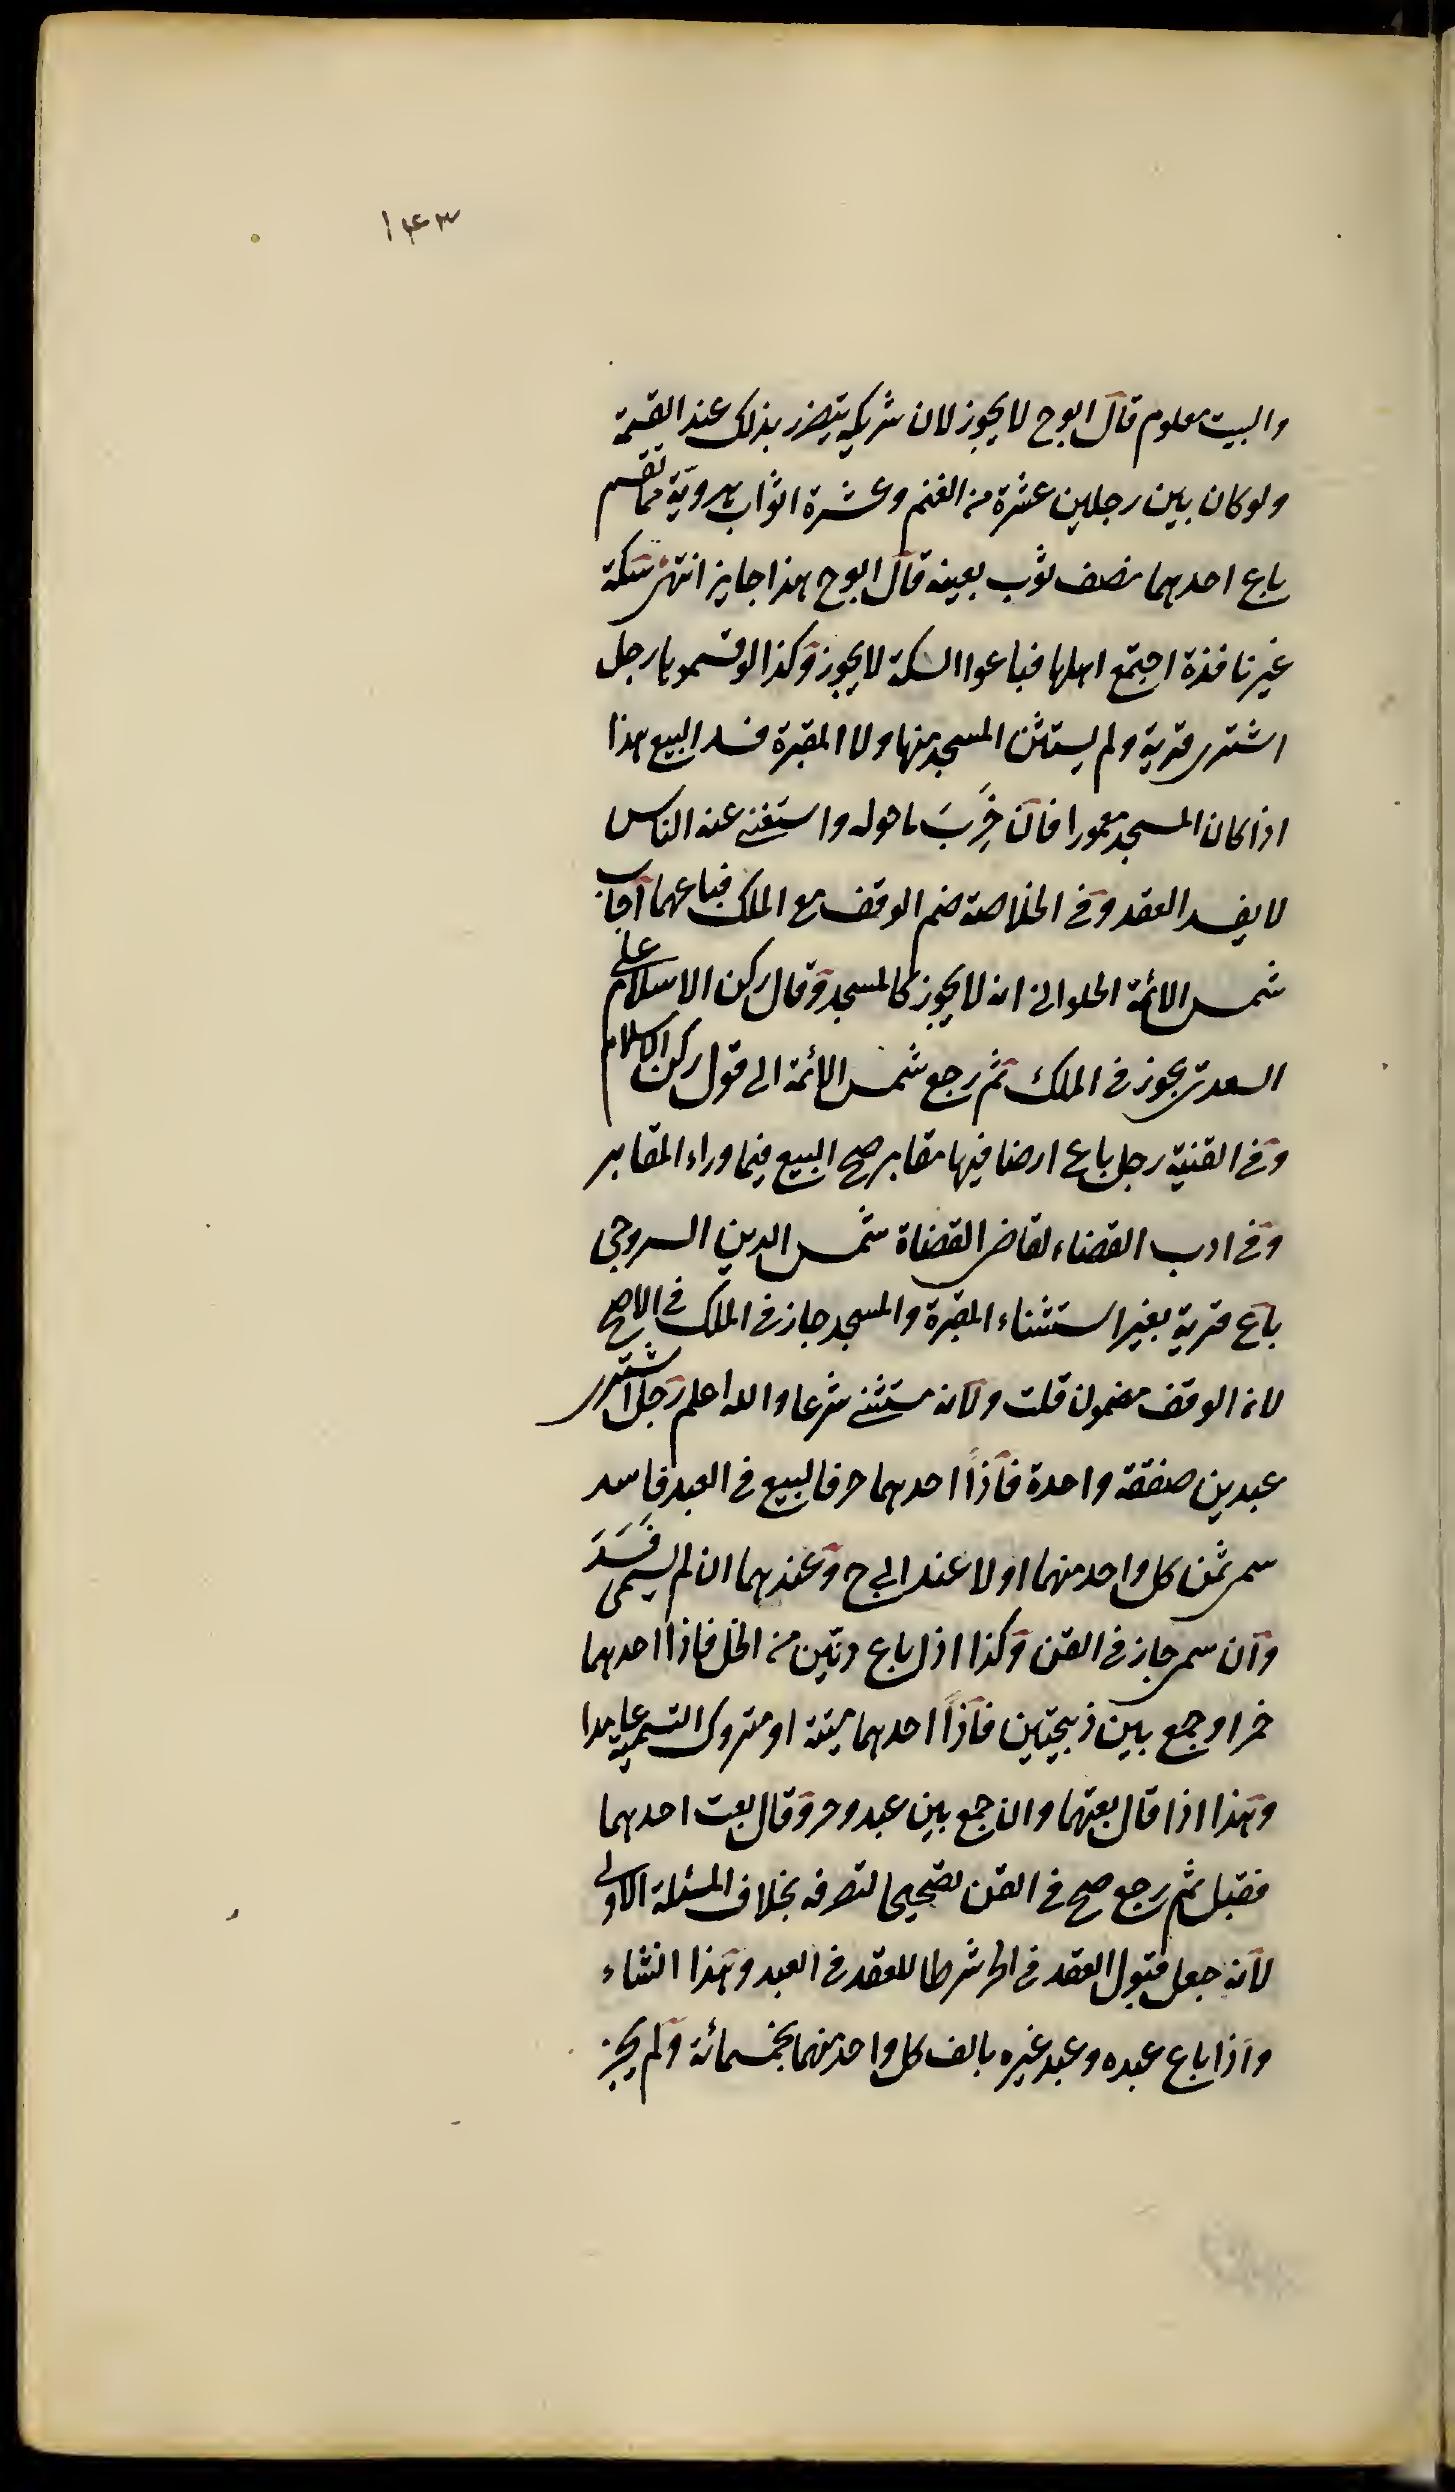 ١٤٣
والبيت معلوم قال ابوح لا يجوز لان شريكه يتضرر بذلك عند القسمة
ولو كان بين رجلين عشرة من الغنم وعشرة اثواب هروية مما تقسم
باع احدهما نصف ثوب بعينه قال ابوح هذا جايز انتهى سكة
غير نافذة اجتمع اهلها فباعوا السكة لا يجوز وكذا لو قسموها رجل
اشترى قرية ولم يستثن المسجد منها ولا المقبرة فسد البيع هذا
اذا كان المسجد معمورا فان خَرِبَ ما حوله واستغنى عنه الناس
لا يفسد العقد وفى الخلاصة ضم الوقف مع الملك فباعهما اجاب
شمس الائمة الحلوانى انه لا يجوز كالمسجد وقال ركن الاسلام على
السعدى يجوز فى الملك ثم رجع شمس الائمة الى قول ركن الاسلام
وفى القنية رجل باع ارضا فيها مقابر صح البيع فيما وراء المقابر
وفى ادب القضاء لقاضى القضاة شمس الدين السروجى
باع قرية بغير استثناء المقبرة والمسجد جاز فى الملك فى الاصح
لان الوقف مضمون قلت ولانه مستثنى شرعا والله اعلم رجل اشترى
عبدين صفقة واحدة فاذا احدهما حر فالبيع فى العبد فاسد
سمى ثمن كل واحد منهما اولا عند ابى ح وعندهما ان لم يسمى فَسَدَ
وان سمى جاز فى القن وكذا اذا باع دنين من الخل فاذا احدهما
خمر او جمع بين ذبيحتين فاذا احدهما ميتة او متروك التسمية عامدا
وهذا اذا قال بعتهما وان جمع بين عبد وحر وقال بعت احدهما
فقبل ثم رجع صح فى القن تصحيحا لتصرفه بخلاف المسئلة الاولى
لانه جعل قبول العقد فى الحر شرطا للعقد فى العبد وهذا انشاء
واذا باع عبده وعبد غيره بالف كل واحد منهما بخمسمائة ولم يجز